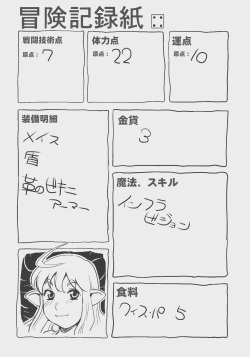 冒険記録紙
戦闘技術点
原点：7
体力点
原点：22
運点
原点：10
装備明細
メイス
盾
革のビキニ
アーマー
金貨
3
魔法、スキル
インフラ
ビジョン
食料
ウィスパ 5